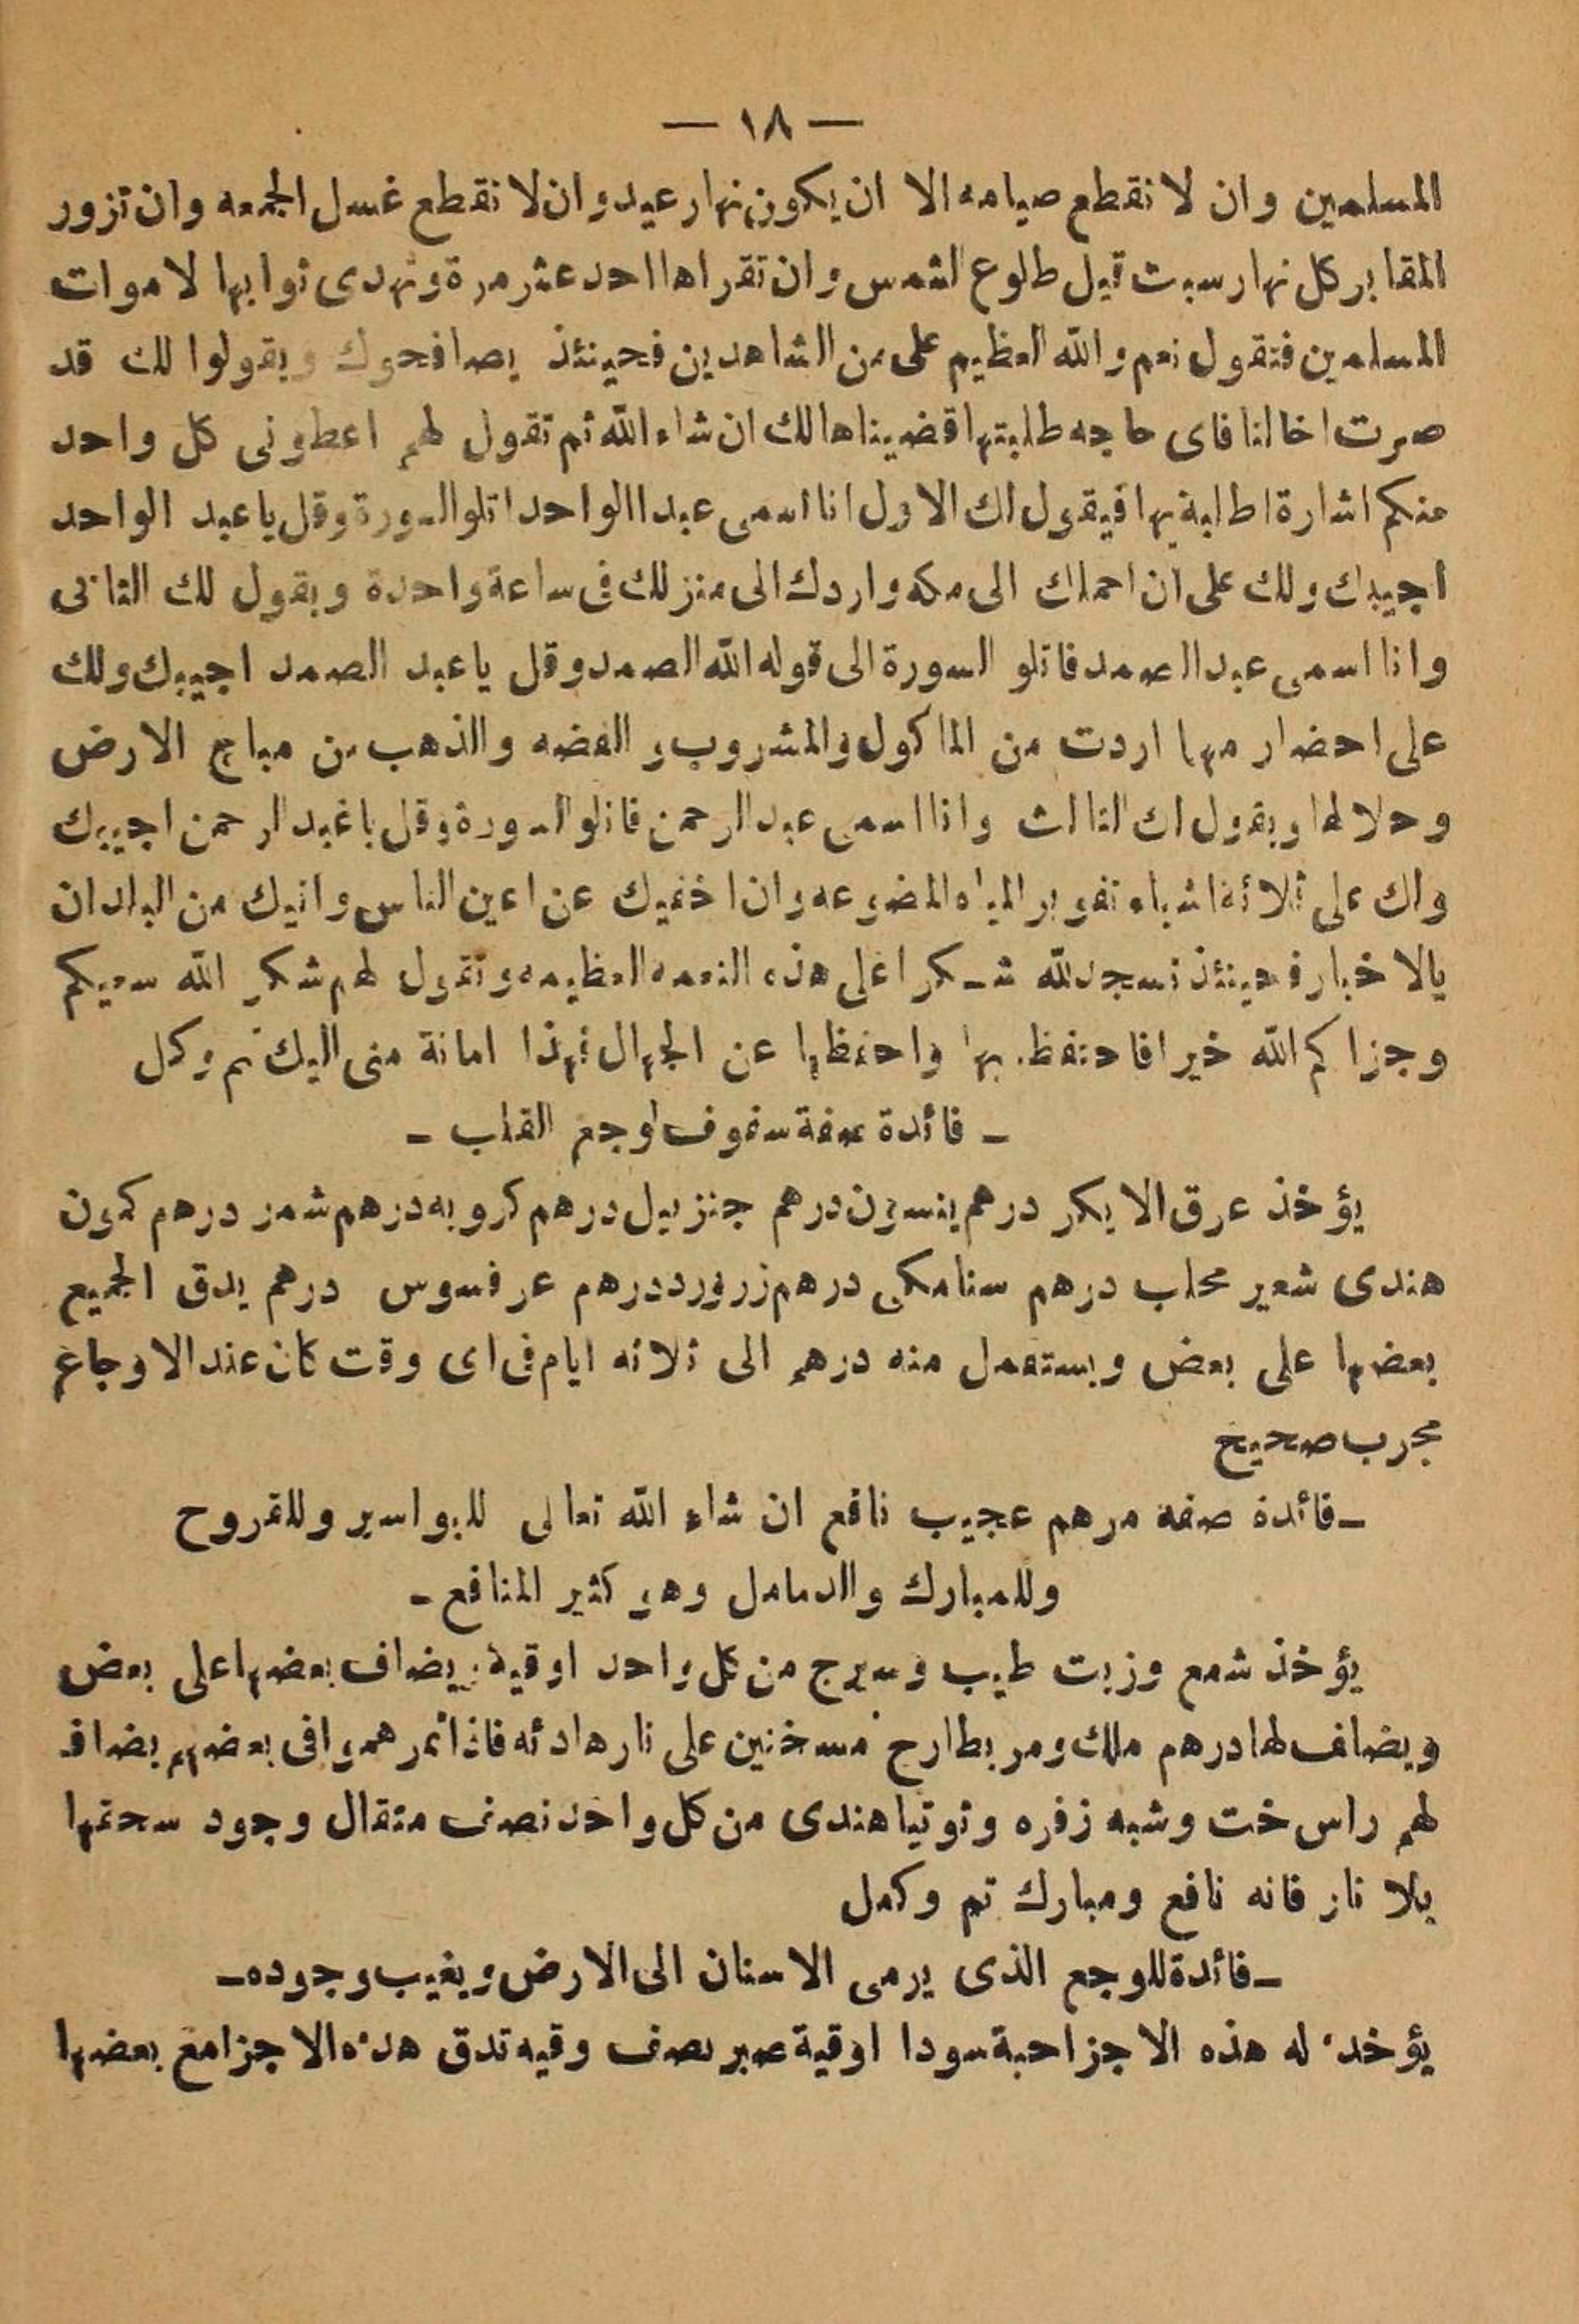 — ١٨ —
المسلمين وان لا نقطع صيامه الا ان يكون نهار عيد وان لا نقطع غسل الجمعه وان تزور
المقابر كل نهار سبت قبل طلوع الشمس وان تقراها احد عشر مرة وتهدى ثوابها لاموات
المسلمين فتقول نعم والله العظيم على من الشاهدين فحينئذ يصافحوك ويقولوا لك قد
صرت اخا لنا فاى حاجه طلبتها قضيناها لك ان شاء الله ثم تقول لهم اعطونى كل واحد
منكم اشارة اطلبه بها فيقول لك الاول انا اسمى عبد الواحد اتلو السورة وقل يا عبد الواحد
اجيبك ولك على ان احملك الى مكه واردك الى منزلك فى ساعة واحدة ويقول لك الثانى
وانا اسمى عبد الصمد فاتلو السورة الى قوله الله الصمد وقل يا عبد الصمد اجيبك ولك
على احضار مهما اردت من الماكول والمشروب والفضه والذهب من مباح الارض
وحلالها ويقول لك الثالث وانا اسمى عبد الرحمن فاتلو السورة وقل يا عبد الرحمن اجيبك
ولك على ثلاثة اشياء تغوير المياه المضوعه وان اخفيك عن اعين الناس واتيك من البلدان
بالاخبار فحينئذ تسجد لله شكرا على هذه النعمه العظيمه وتقول لهم شكر الله سعيكم
وجزاكم الله خيرا فاحتفظ بها واحفظها عن الجهال فهذا امانة منى اليك تم وكل
– فائدة صفة سفوف لوجع القلب –
يؤخذ عرق الايكر درهم ينسون درهم جنزبيل درهم كرويه درهم شمر درهم كمون
هندى شعير محلب درهم سنامكى درهم زرورد درهم عرفسوس درهم يدق الجميع
بعضها على بعض ويستعمل منه درهم الى ثلاثه ايام فى اى وقت كان عند الاوجاع
مجرب صحيح
– فائدة صفة مرهم عجيب نافع ان شاء الله تعالى للبواسير وللقروح
وللمبارك والدمامل وهو كثير المنافع –
يؤخذ شمع وزيت طيب وسيرج من كل واحد اوقية يضاف بعضها على بعض
ويضاف لها درهم ملك ومر بطارخ مسخنين على نار هادئه فاذا تمرهموا فى بعضهم يضاف
لهم راس خت وشبه زفره وتوتيا هندى من كل واحد نصف مثقال وجود سحقها
بلا نار فانه نافع ومبارك تم وكمل
– فائدة للوجع الذى يرمى الاسنان الى الارض ويغيب وجوده –
يؤخذ له هذه الاجزا حبة سودا اوقية صبر نصف وقيه تدق هذه الاجزا مع بعضها